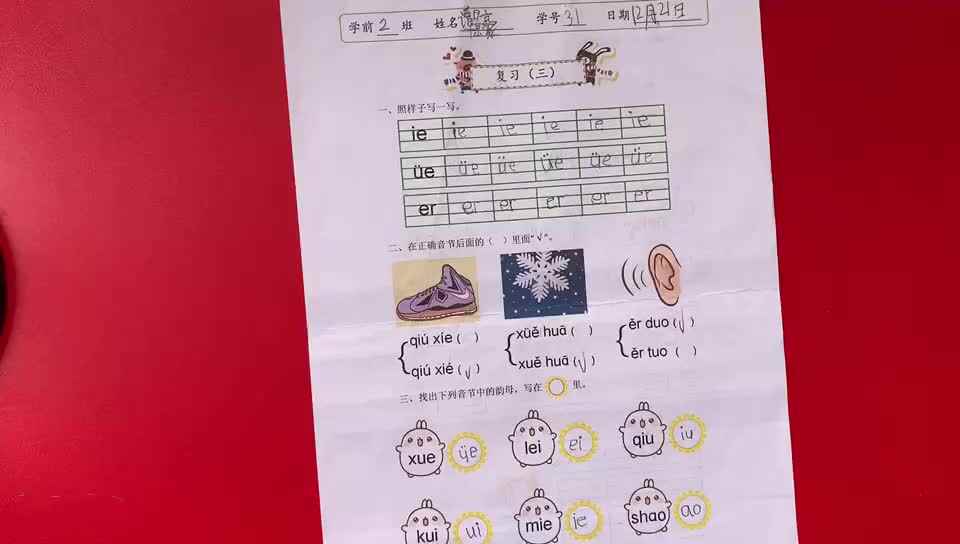 学前 2 班 姓名 学号 31 日期 12月21日
复习（三）
一、照样子写一写。
ie ie ie ie ie ie
üe üe üe üe üe üe
er er er er er er
二、在正确音节后面的（ ）里面“√”。
qiú xie（ ） xüě huā（ ） ěr duo（√）
qiú xié（√） xuě huā（√） ěr tuo（ ）
三、找出下列音节中的韵母，写在 里。
xue üe lei ei qiu iu
kui ui mie ie shao ao